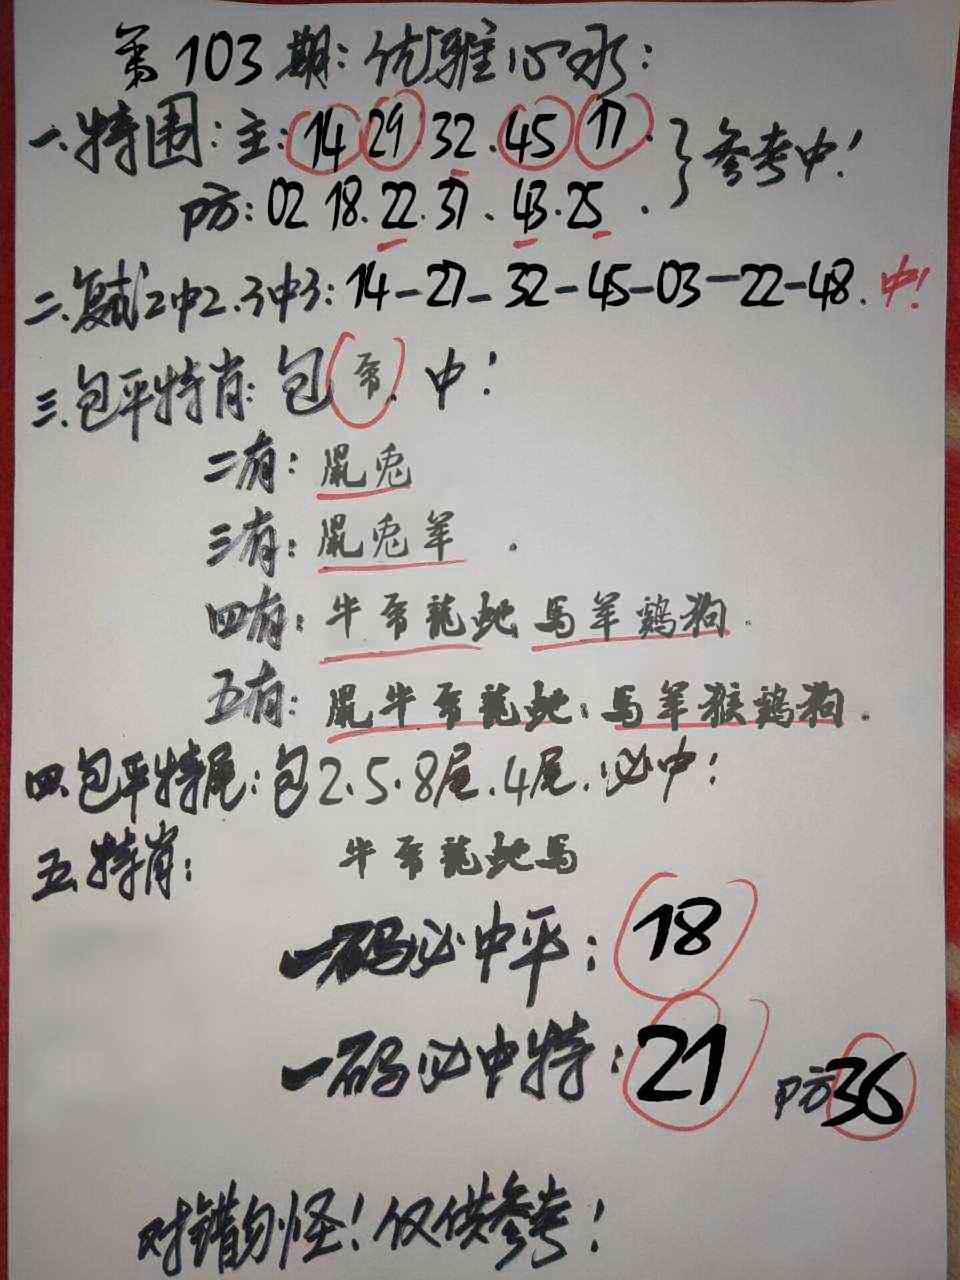 第103期:优雅心水:
一.特围:主:14 29 32.45 17. }参考中!
防:02 18.22.37.43.25.
二.复式2中2.3中3:14-27-32-45-03-22-48.中!
三.包平特肖:包 .中!
二有:鼠兔
三有:鼠兔羊.
四有:牛 龍蛇馬羊鷄狗.
五有:鼠牛 龍蛇.馬羊猴鷄狗.
四.包平特尾:包2.5.8尾.4尾.必中!
五.特肖: 牛 龍蛇馬
一码必中平:18
一码必中特:21 防36
对错勿怪!仅供参考!